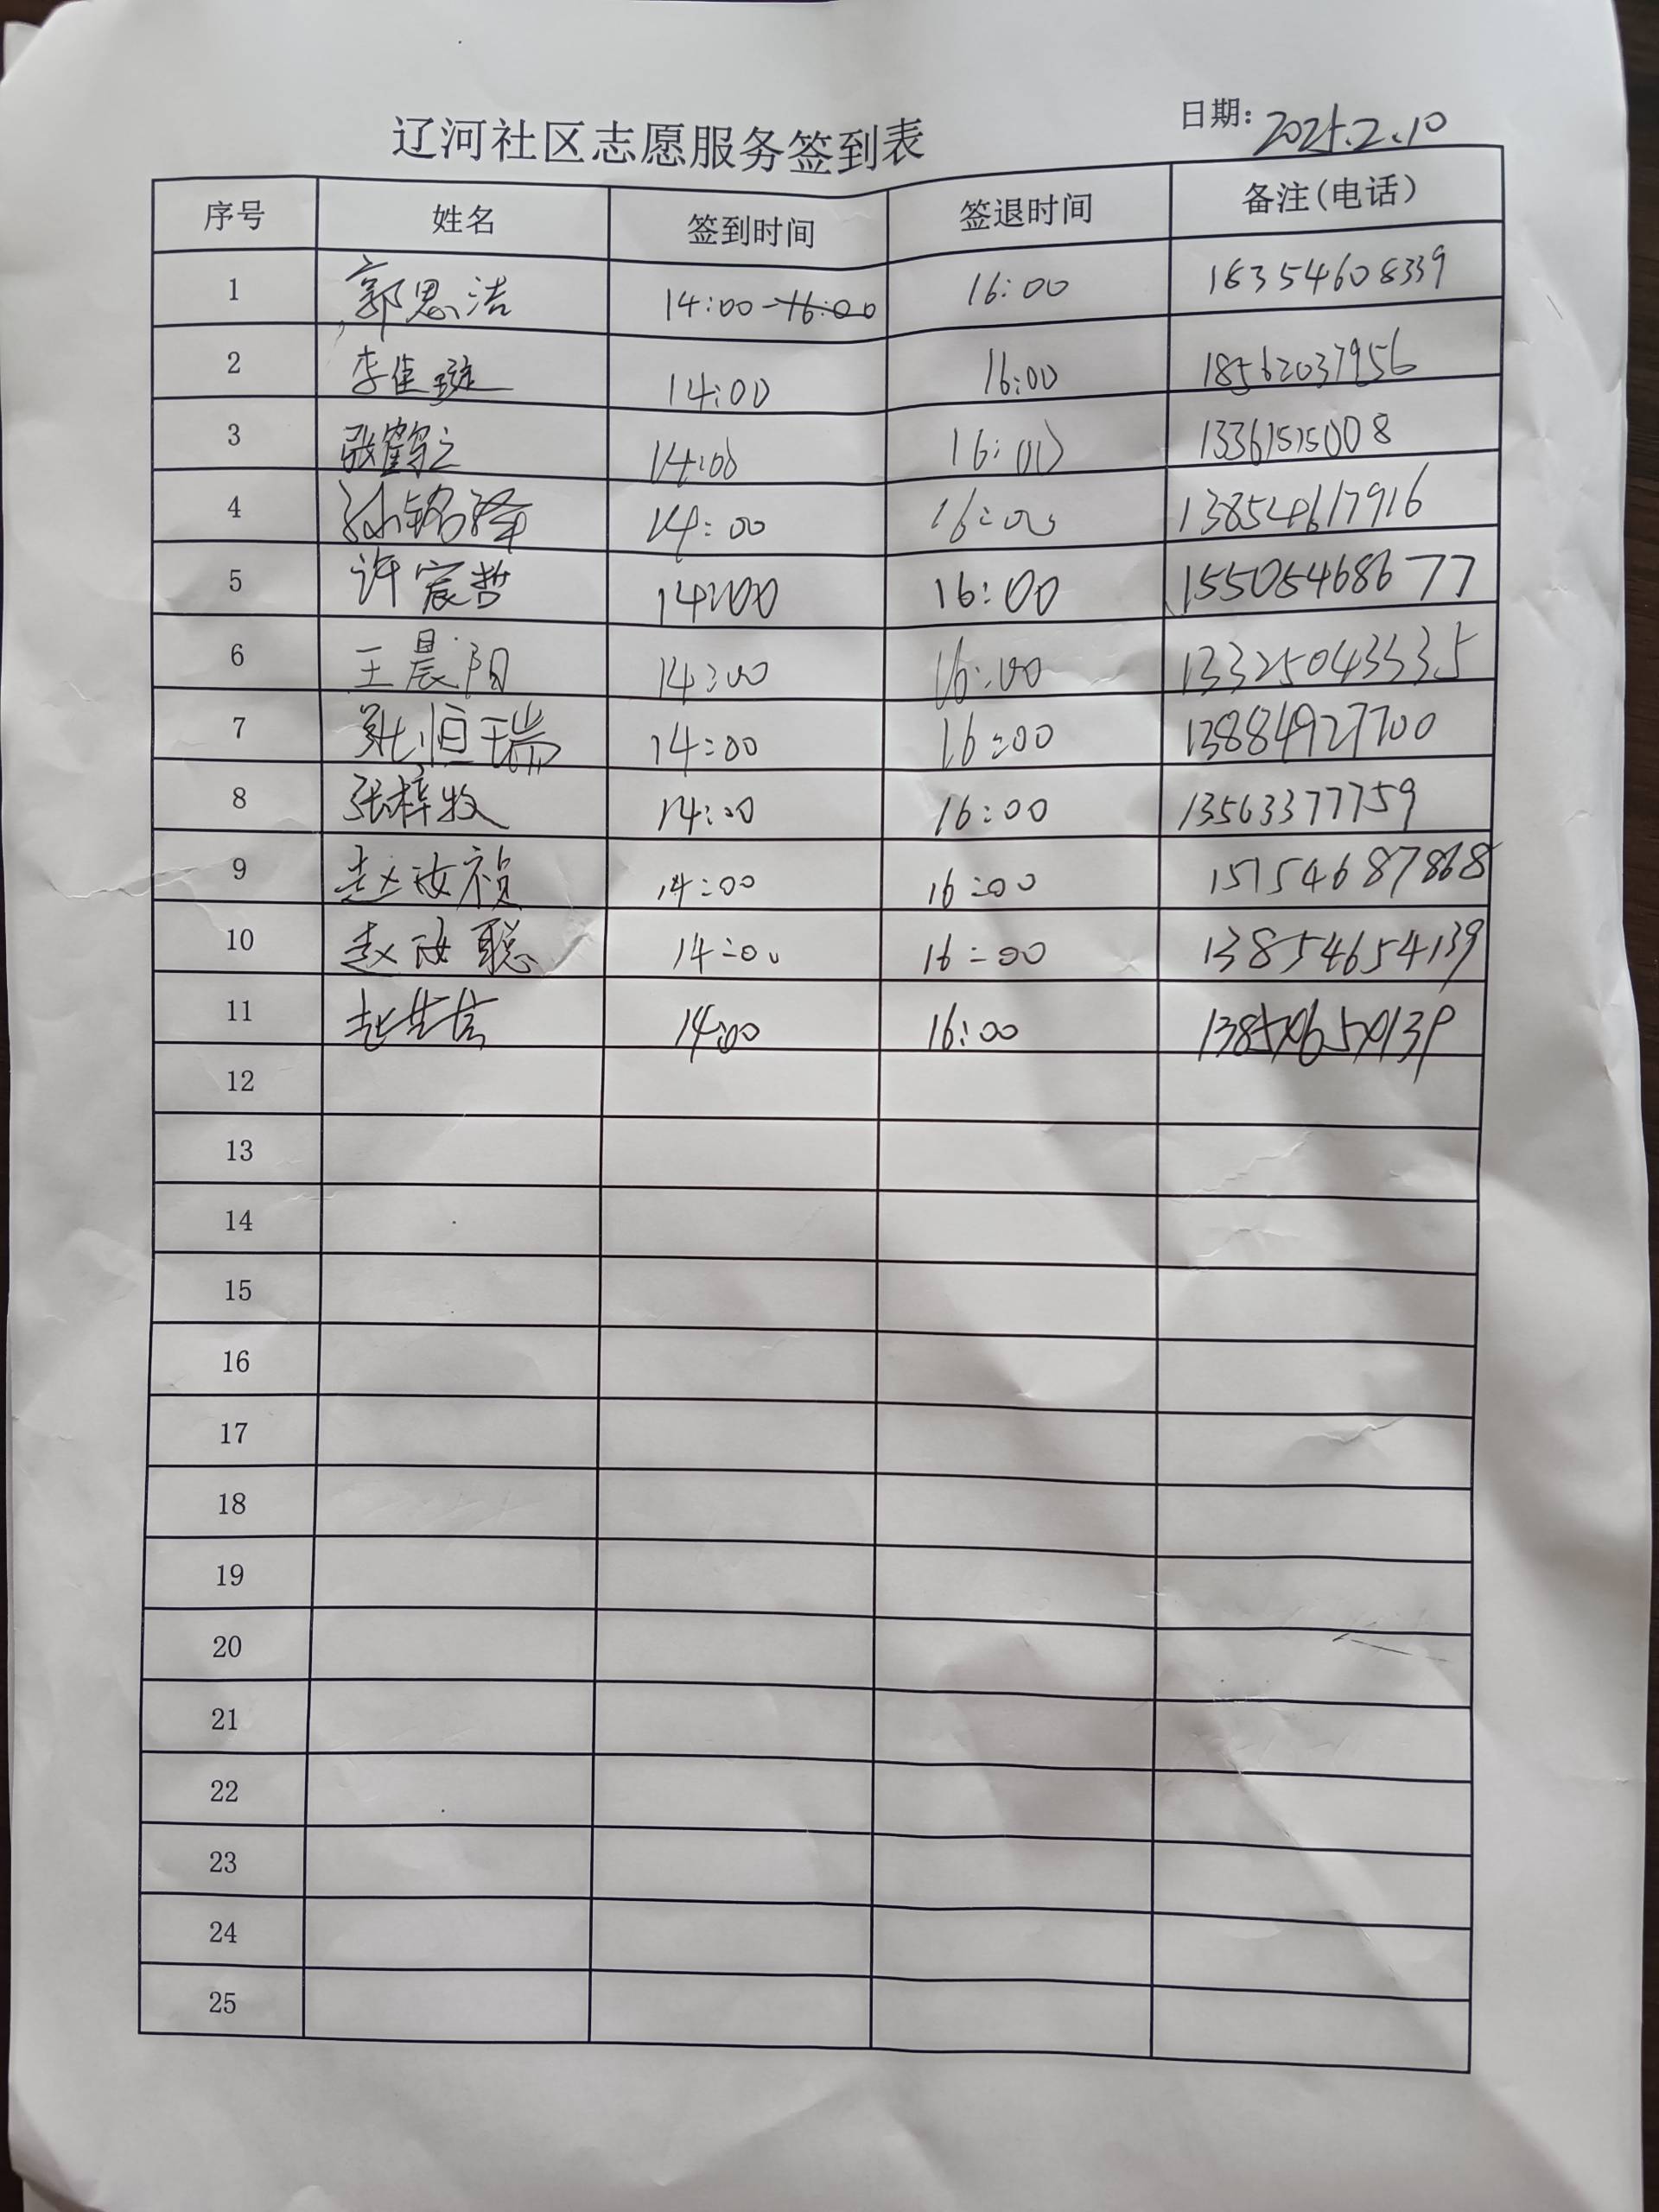 日期: 2025.2.10
辽河社区志愿服务签到表
序号 姓名 签到时间 签退时间 备注(电话)
1 郭思洁 14:00 16:00 18354608339
2 李佳璇 14:00 16:00 18562037956
3 张鹤之 14:00 16:00 13361515008
4 孙铭泽 14:00 16:00 13854617916
5 许宸哲 14:00 16:00 15505468677
6 王晨阳 14:00 16:00 13325043335
7 恒瑞 14:00 16:00 13884927700
8 张梓牧 14:00 16:00 13563377759
9 赵汝祯 14:00 16:00 15154687868
10 赵汝聪 14:00 16:00 13854654139
11 14:00 16:00 13854654139
12
13
14
15
16
17
18
19
20
21
22
23
24
25